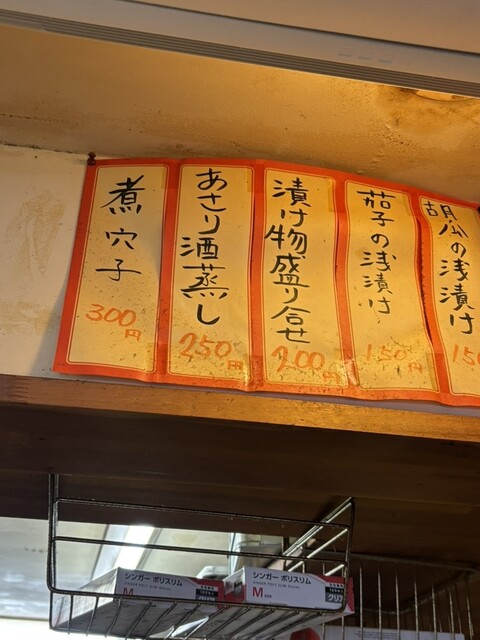 煮穴子
300円
あさり酒蒸し
250円
漬け物盛り合せ
200円
茄子の浅漬け
150円
胡瓜の浅漬け
15
シンガー ポリスリム
M
シンガー ポリスリム
M